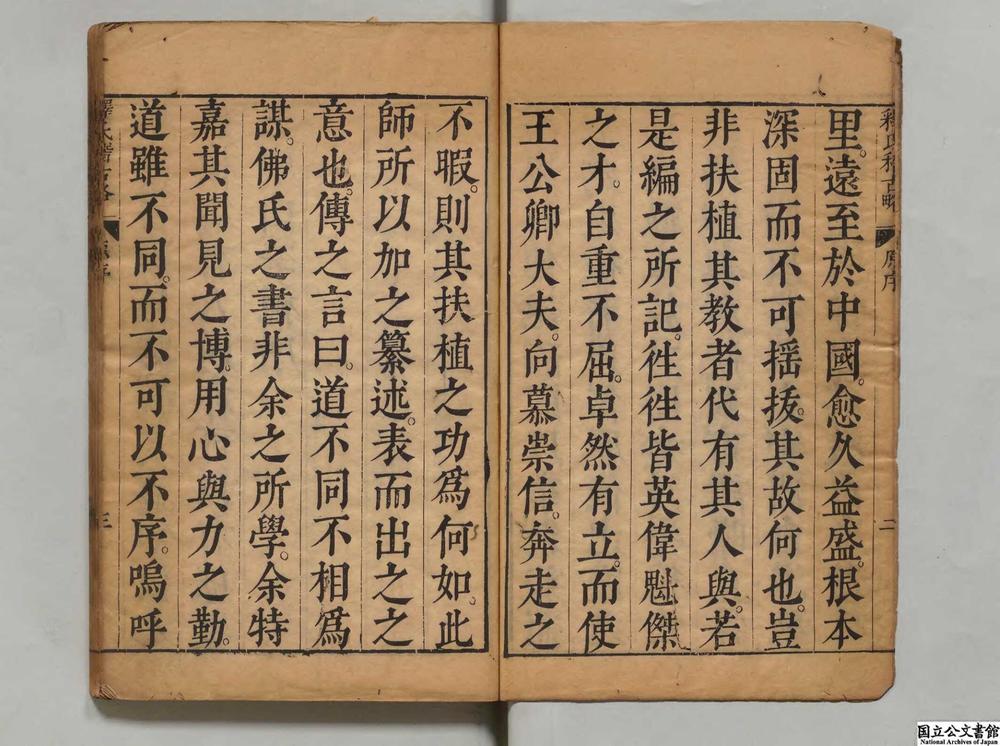 里。遠至於中國。愈久益盛。根本
深固而不可揺抜。其故何也。豈
非扶植其教者代有其人與。若
是編之所記。徃徃皆英偉魁傑
之才。自重不屈。卓然有立。而使
王公卿大夫。向慕崇信。奔走之
不暇。則其扶植之功爲何如。此
師所以加之纂述。表而出之之
意也。傳之言曰。道不同不相爲
謀。佛氏之書非余之所學。余特
嘉其聞見之博。用心與力之勤。
道雖不同。而不可以不序。嗚呼
釋氏稽古略
原序
二
三
国立公文書館
National Archives of Japan